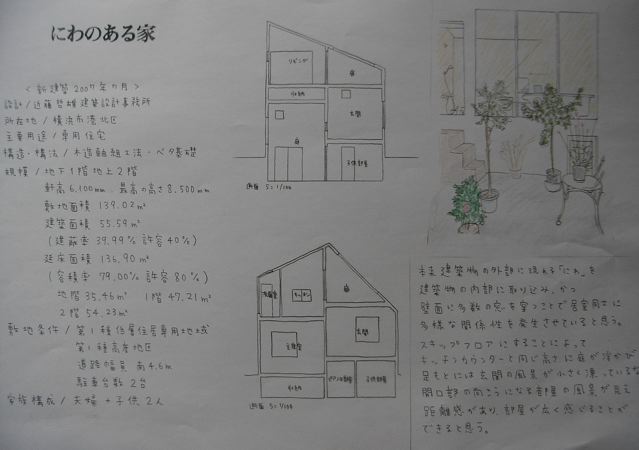 にわのある家
＜新建築2007年7月＞
設計/近藤哲雄建築設計事務所
所在地/横浜市港北区
主要用途/専用住宅
構造・構法/木造軸組工法・ベタ基礎
規模/地下1階地上2階
軒高6.100mm 最高の高さ8.500mm
敷地面積 139.02㎡
建築面積 55.59㎡
(建蔽率 39.99% 許容40%)
延床面積 136.90㎡
(容積率 79.00% 許容80%)
地階35.46㎡ 1階47.21㎡
2階54.23㎡
敷地条件/第1種低層住居専用地域
第1種高度地区
道路幅員 南4.6m
駐車台数 2台
家族構成/夫婦+子供2人
リビング
庭
収納
玄関
庭
子供部屋
断面 S=1/100
洗濯室
キッチン
庭
主寝室
玄関
収納
子供部屋
断面 S=1/100
建築物の外部に流れる「にわ」を
建築物の内部に取り込み、かつ
壁面に多数の窓を穿つことで居室同士に
多様な関係性を発生させていると思う。
スキップフロアにすることによって
キッチンカウンターと同じ高さに庭が浮かび
足もとには玄関の風景が小さく
開口部の向こうになる部屋の風景が見え
距離感があり、部屋が広く感じることが
できると思う。